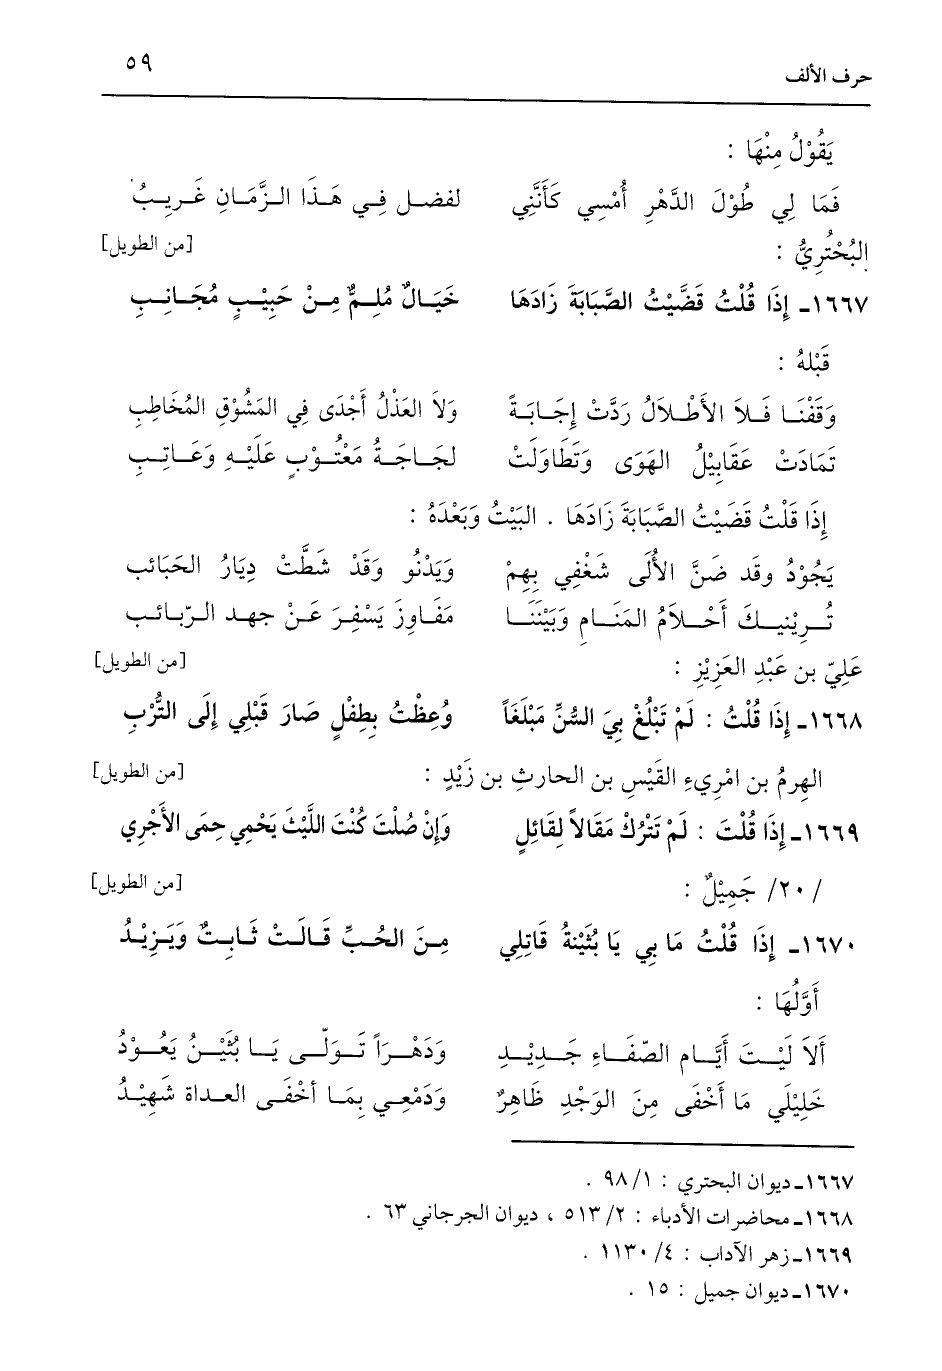 حرف الألف ٥٩
يَقُوْلُ مِنْهَا :
فَمَا لِي طُوْلَ الدَّهْرِ أُمْسِي كَأَنَّنِي لفضل فِي هَذَا الزَّمَانِ غَرِيبُ
البُحْتُرِيُّ : [من الطويل]
١٦٦٧ـ إِذَا قُلْتُ قَضَّيْتُ الصَّبَابَةَ زَادَهَا خَيَالٌ مُلِمٌّ مِنْ حَبِيْبٍ مُجَانِبِ
قَبْلهُ :
وَقَفْنَا فَلاَ الأَطْلاَلُ رَدَّتْ إِجَابَةً وَلاَ العَذْلُ أَجْدَى فِي المَشُوْقِ المُخَاطِبِ
تَمَادَتْ عَقَابِيْلُ الهَوَى وَتَطَاوَلَتْ لجَاجَةُ مَعْتُوْبٍ عَلَيْهِ وَعَاتِبِ
إِذَا قَلْتُ قَضَيْتُ الصَّبَابَةَ زَادَهَا . البَيْتُ وَبَعْدَهُ :
يَجُوْدُ وقَد ضَنَّ الأُلَى شَغْفِي بِهِمْ وَيَدْنُو وَقَدْ شَطَّتْ دِيَارُ الحَبَائب
تُرِيْنِيكَ أَحْلاَمُ المَنَامِ وَبَيْنَنَا مَفَاوِزَ يَسْفِرَ عَنْ جهد الرّبائب
عَلِيّ بن عَبْدِ العَزِيْزِ : [من الطويل]
١٦٦٨ـ إِذَا قُلْتُ : لَمْ تَبْلُغْ بِيَ السُّنِّ مَبْلَغَاً وُعِظْتُ بِطِفْلٍ صَارَ قَبْلِي إِلَى التُّرْبِ
الهرِمُ بن امْرِيءِ القَيْسِ بن الحارثِ بن زَيْدٍ : [من الطويل]
١٦٦٩ـ إِذَا قُلْتَ : لَمْ تَتْرُكْ مَقَالاً لِقَائِلٍ وَإِنْ صُلْتَ كُنْتَ اللَّيْثَ يَحْمِي حِمَى الأَجْرِي
/٢٠/ جَمِيْلٌ : [من الطويل]
١٦٧٠ـ إِذَا قُلْتُ مَا بِي يَا بُثَيْنةُ قَاتِلِي مِنَ الحُبِّ قَالَتْ ثَابِتٌ وَيَزِيْدُ
أَوَّلُهَا :
أَلاَ لَيْتَ أَيَّام الصَّفَاءِ جَدِيْدِ وَدَهْرَاً تَوَلّى يَا بُثَيْنُ يَعُوْدُ
خَلِيْلَي مَا أَخْفَى مِنَ الوَجْدِ ظَاهِرٌ وَدَمْعِي بِمَا أخْفَى العداة شَهِيْدُ
١٦٦٧ـ ديوان البحتري : ١/ ٩٨ .
١٦٦٨ـ محاضرات الأدباء : ٢/ ٥١٣ ، ديوان الجرجاني ٦٣ .
١٦٦٩ـ زهر الآداب : ٤/ ١١٣٠ .
١٦٧٠ـ ديوان جميل : ١٥ .